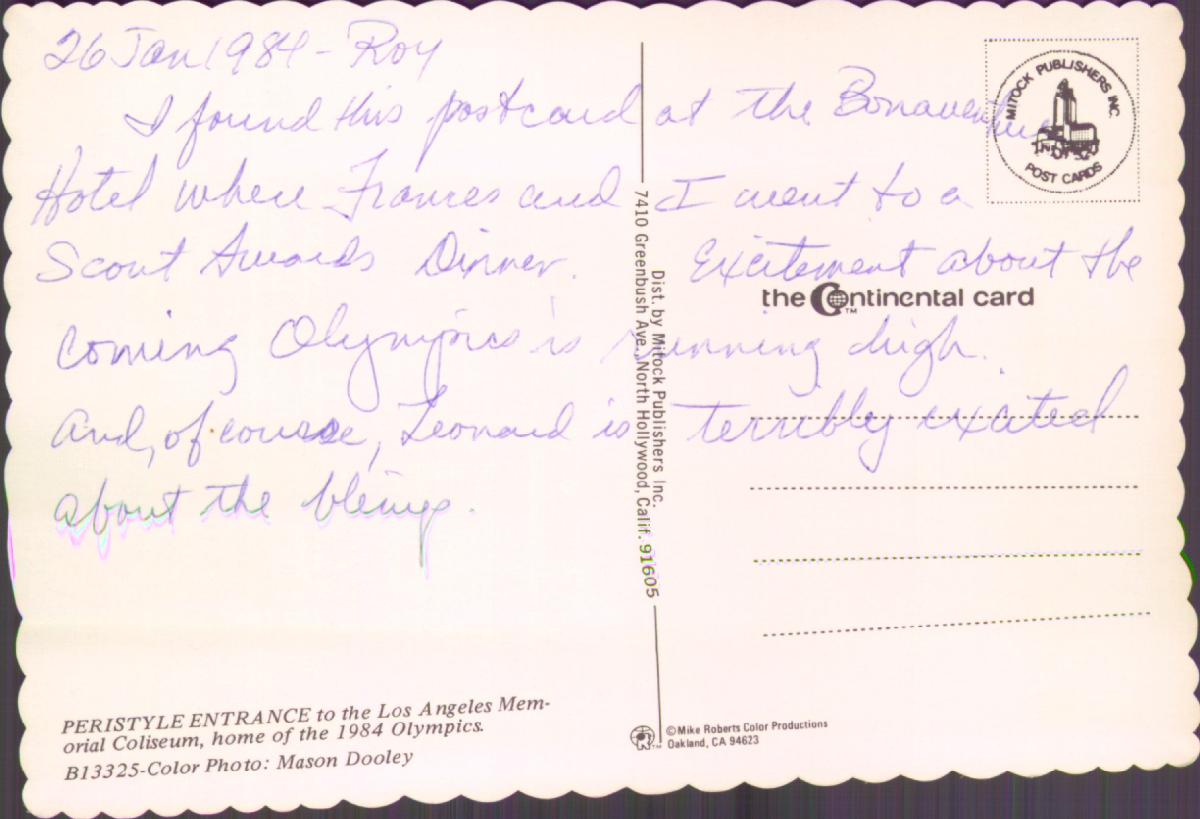 26 Jan 1984 - Roy
I found this postcard at the Bonaventure
Hotel where Frances and I went to a
Scout Awards Dinner. Excitement about the
coming Olympics is running high.
And, of course, Leonard is terribly excited
about the
PERISTYLE ENTRANCE to the Los Angeles Mem-
orial Coliseum, home of the 1984 Olympics.
B13325-Color Photo: Mason Dooley
7410 Greenbush Ave., North Hollywood, Calif. 91605
Dist. by Mitock Publishers Inc.
MITOCK PUBLISHERS INC.
POST CARDS
the Continental card
TM
©Mike Roberts Color Productions
Oakland, CA 94623